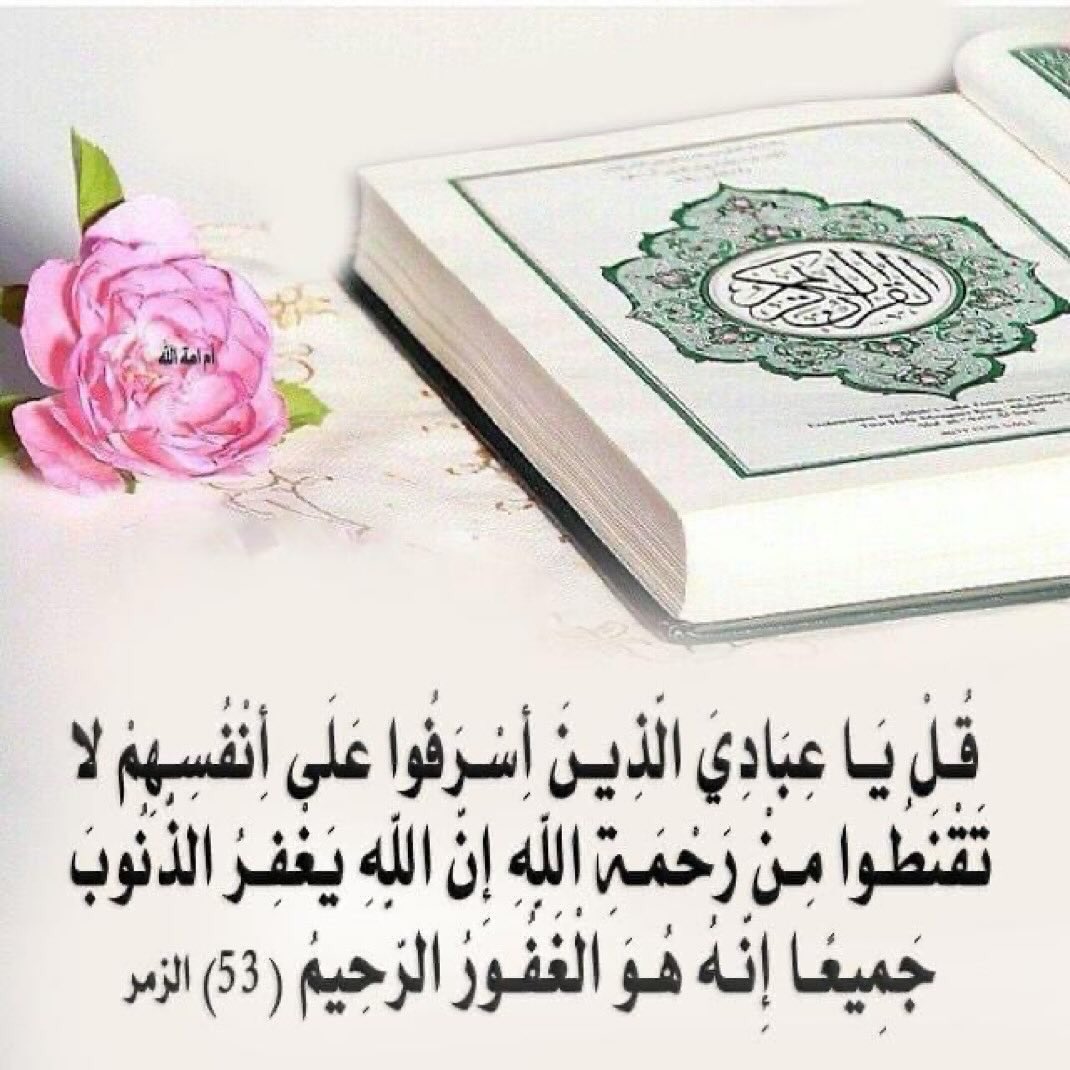 القرآن الكريم
أم امة الله
قُلْ يَا عِبَادِيَ الَّذِينَ أَسْرَفُوا عَلَى أَنْفُسِهِمْ لا
تَقْنَطُوا مِنْ رَحْمَةِ اللَّهِ إِنَّ اللَّهِ يَغْفِرُ الذُّنُوبَ
جَمِيعًا إِنَّهُ هُوَ الْغَفُورُ الرَّحِيمُ (53) الزمر